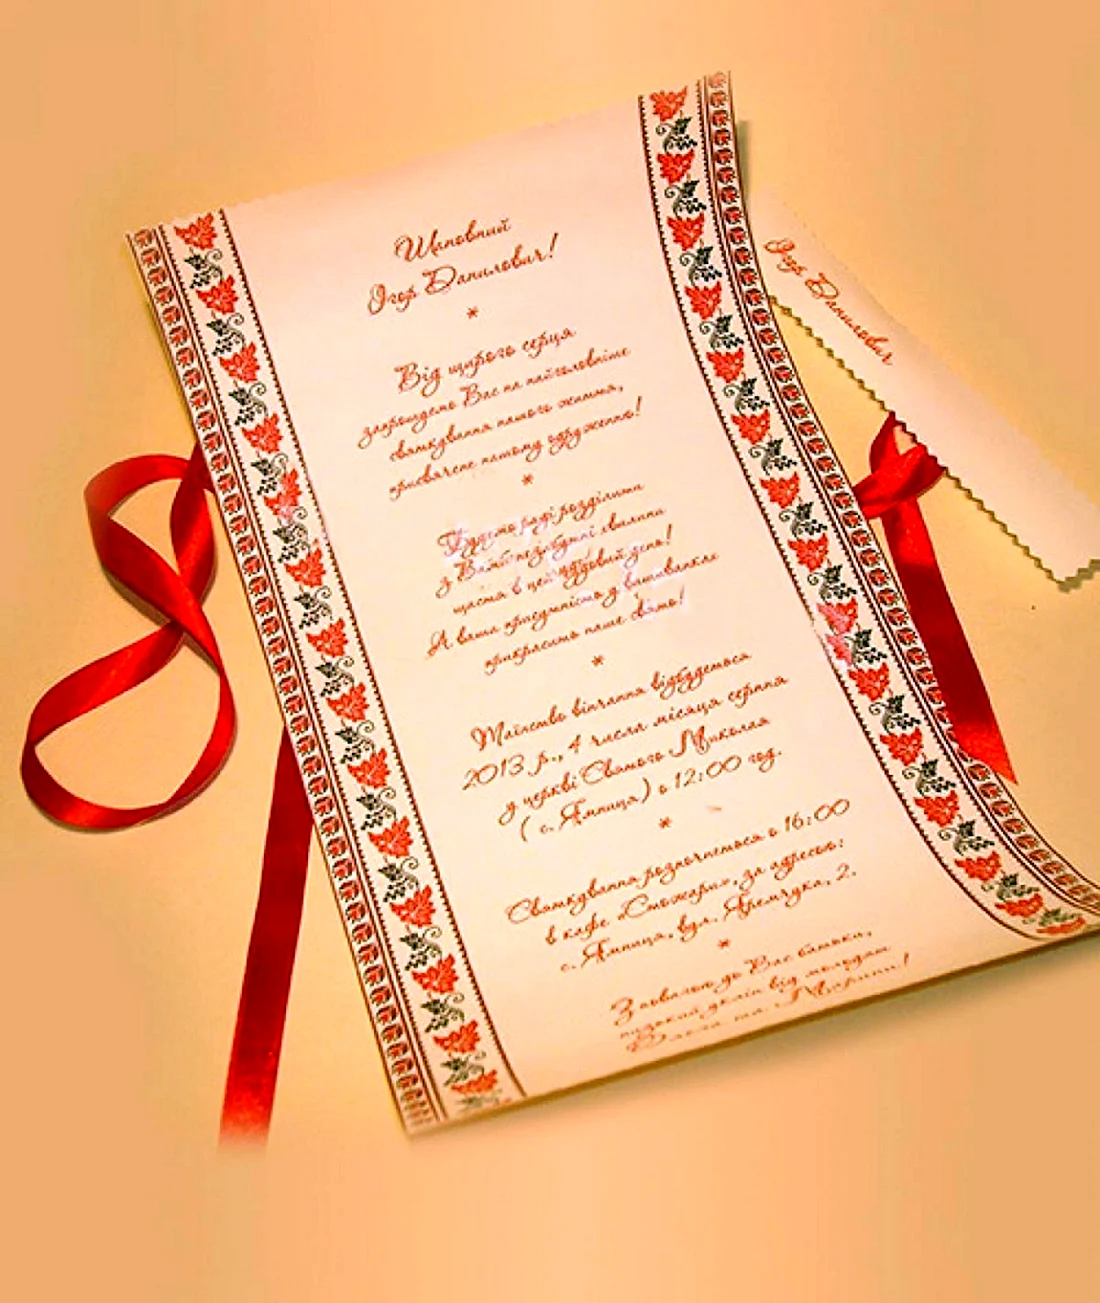 Шановний
Ігор Данилович!
*
Від щирого серця
запрошуємо Вас на найголовніше
святкування нашого життя,
присвячене нашому одруженню!
*
Будемо раді розділити
з Вами незабутні хвилини
щастя в цей чудовий день!
А ваша присутність у вишиванке
прикрасить наше свято!
*
Таїнство вінчання відбудеться
2013 р., 4 числа місяця серпня
у церкві Святого Миколая
( с. Ямниця) о 12:00 год.
*
Святкування розпочнеться о 16:00
в кафе «Стожари», за адресою:
с. Ямниця, вул. Яремчука, 2.
*
З повагою до Вас батьки,
низький уклін від молодят
Олега та Марини!
Ігор Данилович